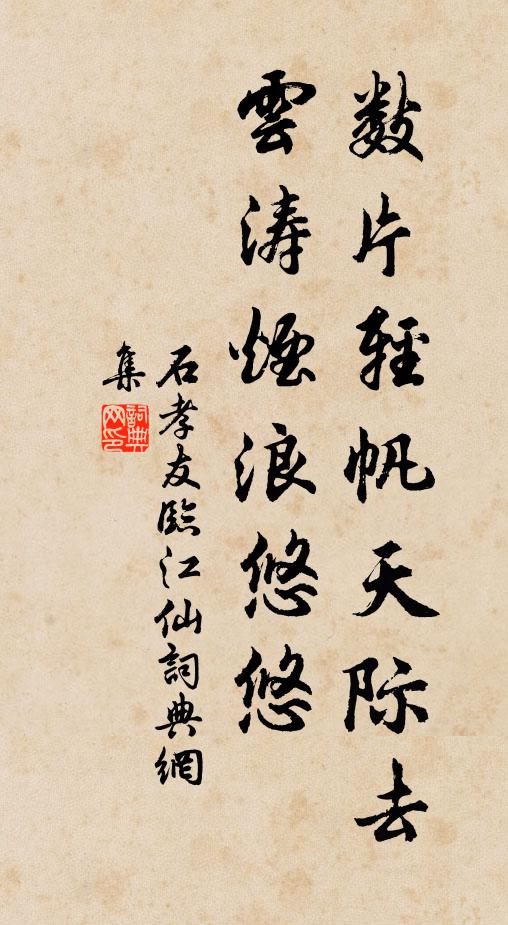 數片輕帆天际去
雲涛煙浪悠悠
石孝友臨江仙詞典網
集
詞典
网印